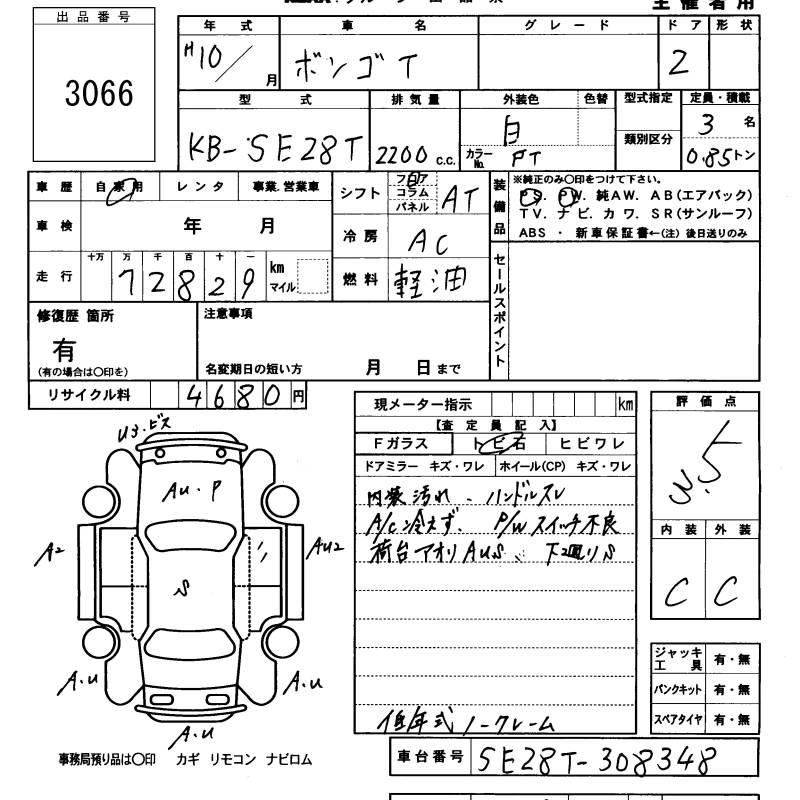 主催者用
出品番号
3066
年式 車名 グレード ドア 形状
H10/月 ボンゴT 2
型式 排気量 外装色 色替 型式指定 定員・積載
KB-SE28T 2200c.c. 白 類別区分 3名
カラーNo. PT 0.85トン
車歴 自家用 レンタ 事業.営業車
車検 年 月
走行 十万 万 千 百 十 一
72829 km マイル
シフト フロア コラム パネル AT
冷房 AC
燃料 軽油
装備品
※純正のみ〇印をつけて下さい。
PS. PW. 純AW. AB(エアバック)
TV. ナビ. カワ. SR(サンルーフ)
ABS ・ 新車保証書←(注) 後日送りのみ
セールスポイント
修復歴 箇所
有
(有の場合は〇印を)
注意事項
名変期日の短い方 月 日まで
リサイクル料 4680円
現メーター指示 km
【査定員記入】
Fガラス トビ石 ヒビワレ
ドアミラー キズ・ワレ ホイール(CP) キズ・ワレ
内装汚れ、ハンドルスレ
A/C冷えず、P/Wスイッチ不良
荷台アオリAUS、下廻りS
低年式ノークレーム
評価点
3.5
内装 外装
C C
U3.ビス
AU・P
A2
AU2
S
A.U
A.U
A.U
ジャッキ工具 有・無
パンクキット 有・無
スペアタイヤ 有・無
事務局預り品は〇印 カギ リモコン ナビロム
車台番号 SE28T-308348